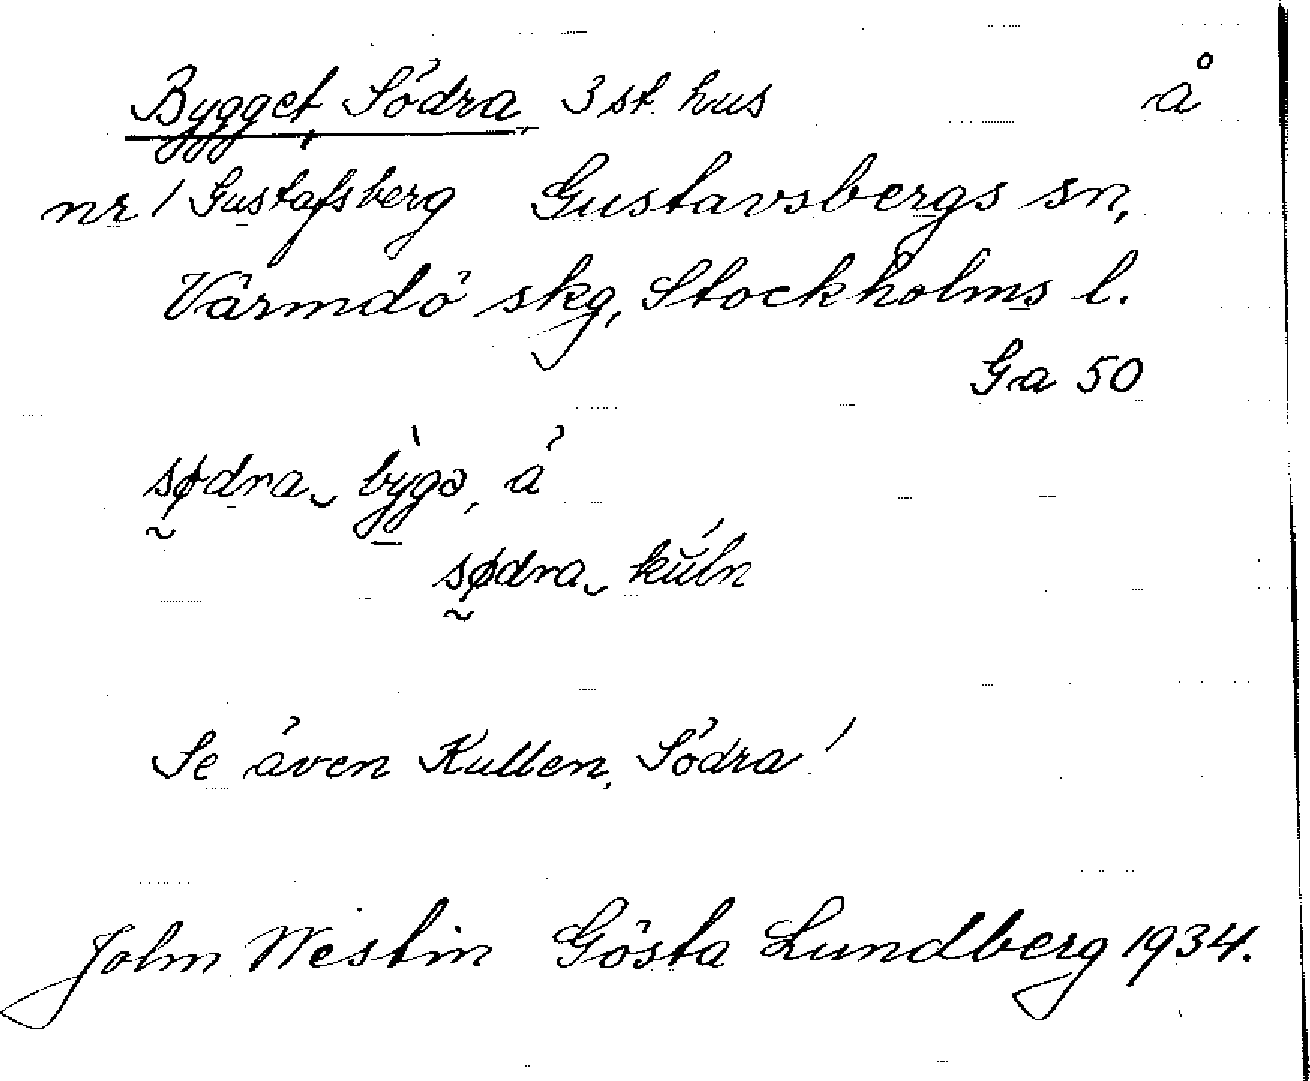 Bygget, Södra 3 st. hus å
nr 1 Gustafsberg Gustavsbergs sn,
Värmdö skg, Stockholms l.
Ga 50
sødra bỳgə, á
sødra kúln
Se även Kullen, Södra!
John Westin Gösta Lundberg 1934.